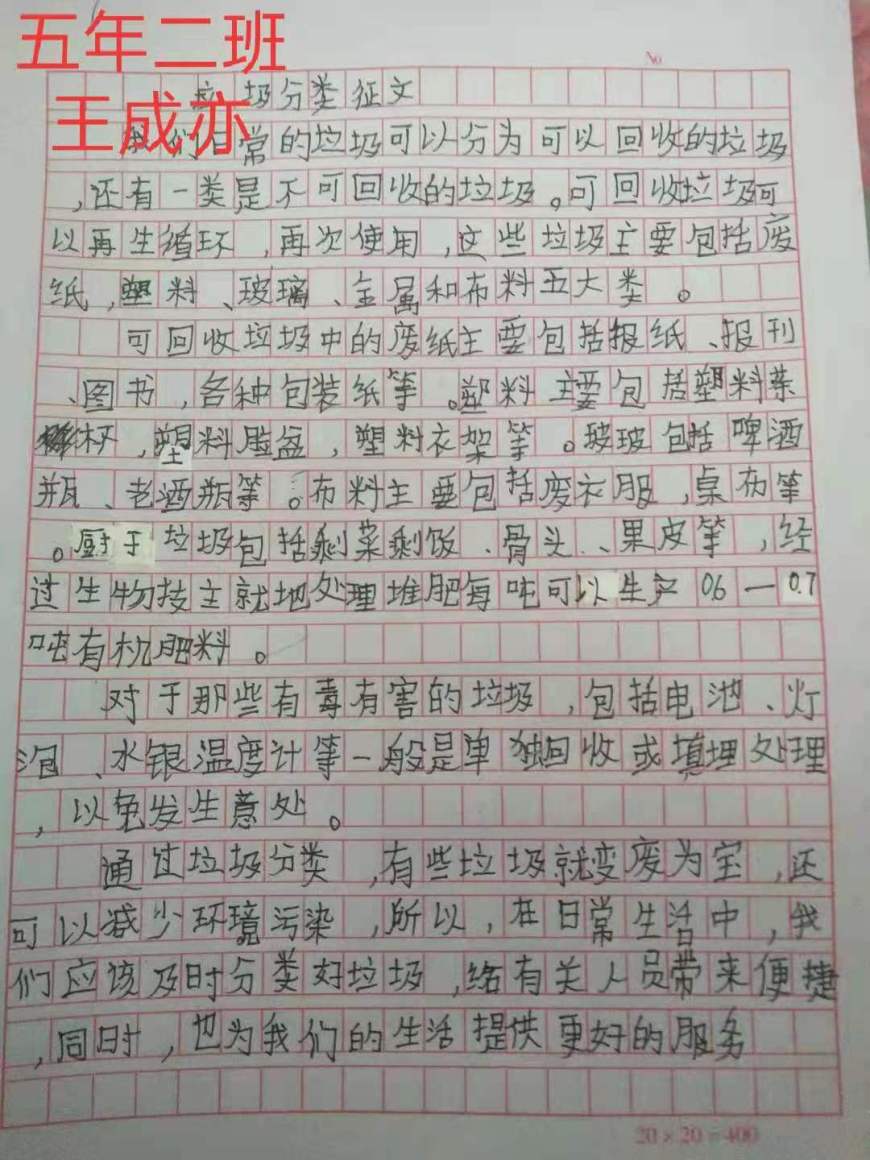 五年二班
No
垃圾分类征文
王成亦
我们日常的垃圾可以分为可以回收的垃圾
,还有一类是不可回收的垃圾。可回收垃圾可
以再生循环,再次使用,这些垃圾主要包括废
纸,塑料、玻璃、金属和布料五大类。
可回收垃圾中的废纸主要包括报纸、报刊
、图书,各种包装纸等。塑料主要包括塑料茶
杯,塑料脸盆,塑料衣架等。玻玻包括啤酒
瓶、老酒瓶等。布料主要包括废衣服,桌布等
。厨于垃圾包括剩菜剩饭、骨头、果皮等,经
过生物技主就地处理堆肥每吨可以生产0.6—0.7
吨有机肥料。
对于那些有毒有害的垃圾,包括电池、灯
泡、水银温度计等一般是单独回收或填埋处理
,以免发生意处。
通过垃圾分类,有些垃圾就变废为宝,还
可以减少环境污染,所以,在日常生活中,我
们应该及时分类好垃圾,给有关人员带来便捷
,同时,也为我们的生活提供更好的服务
20×20=400